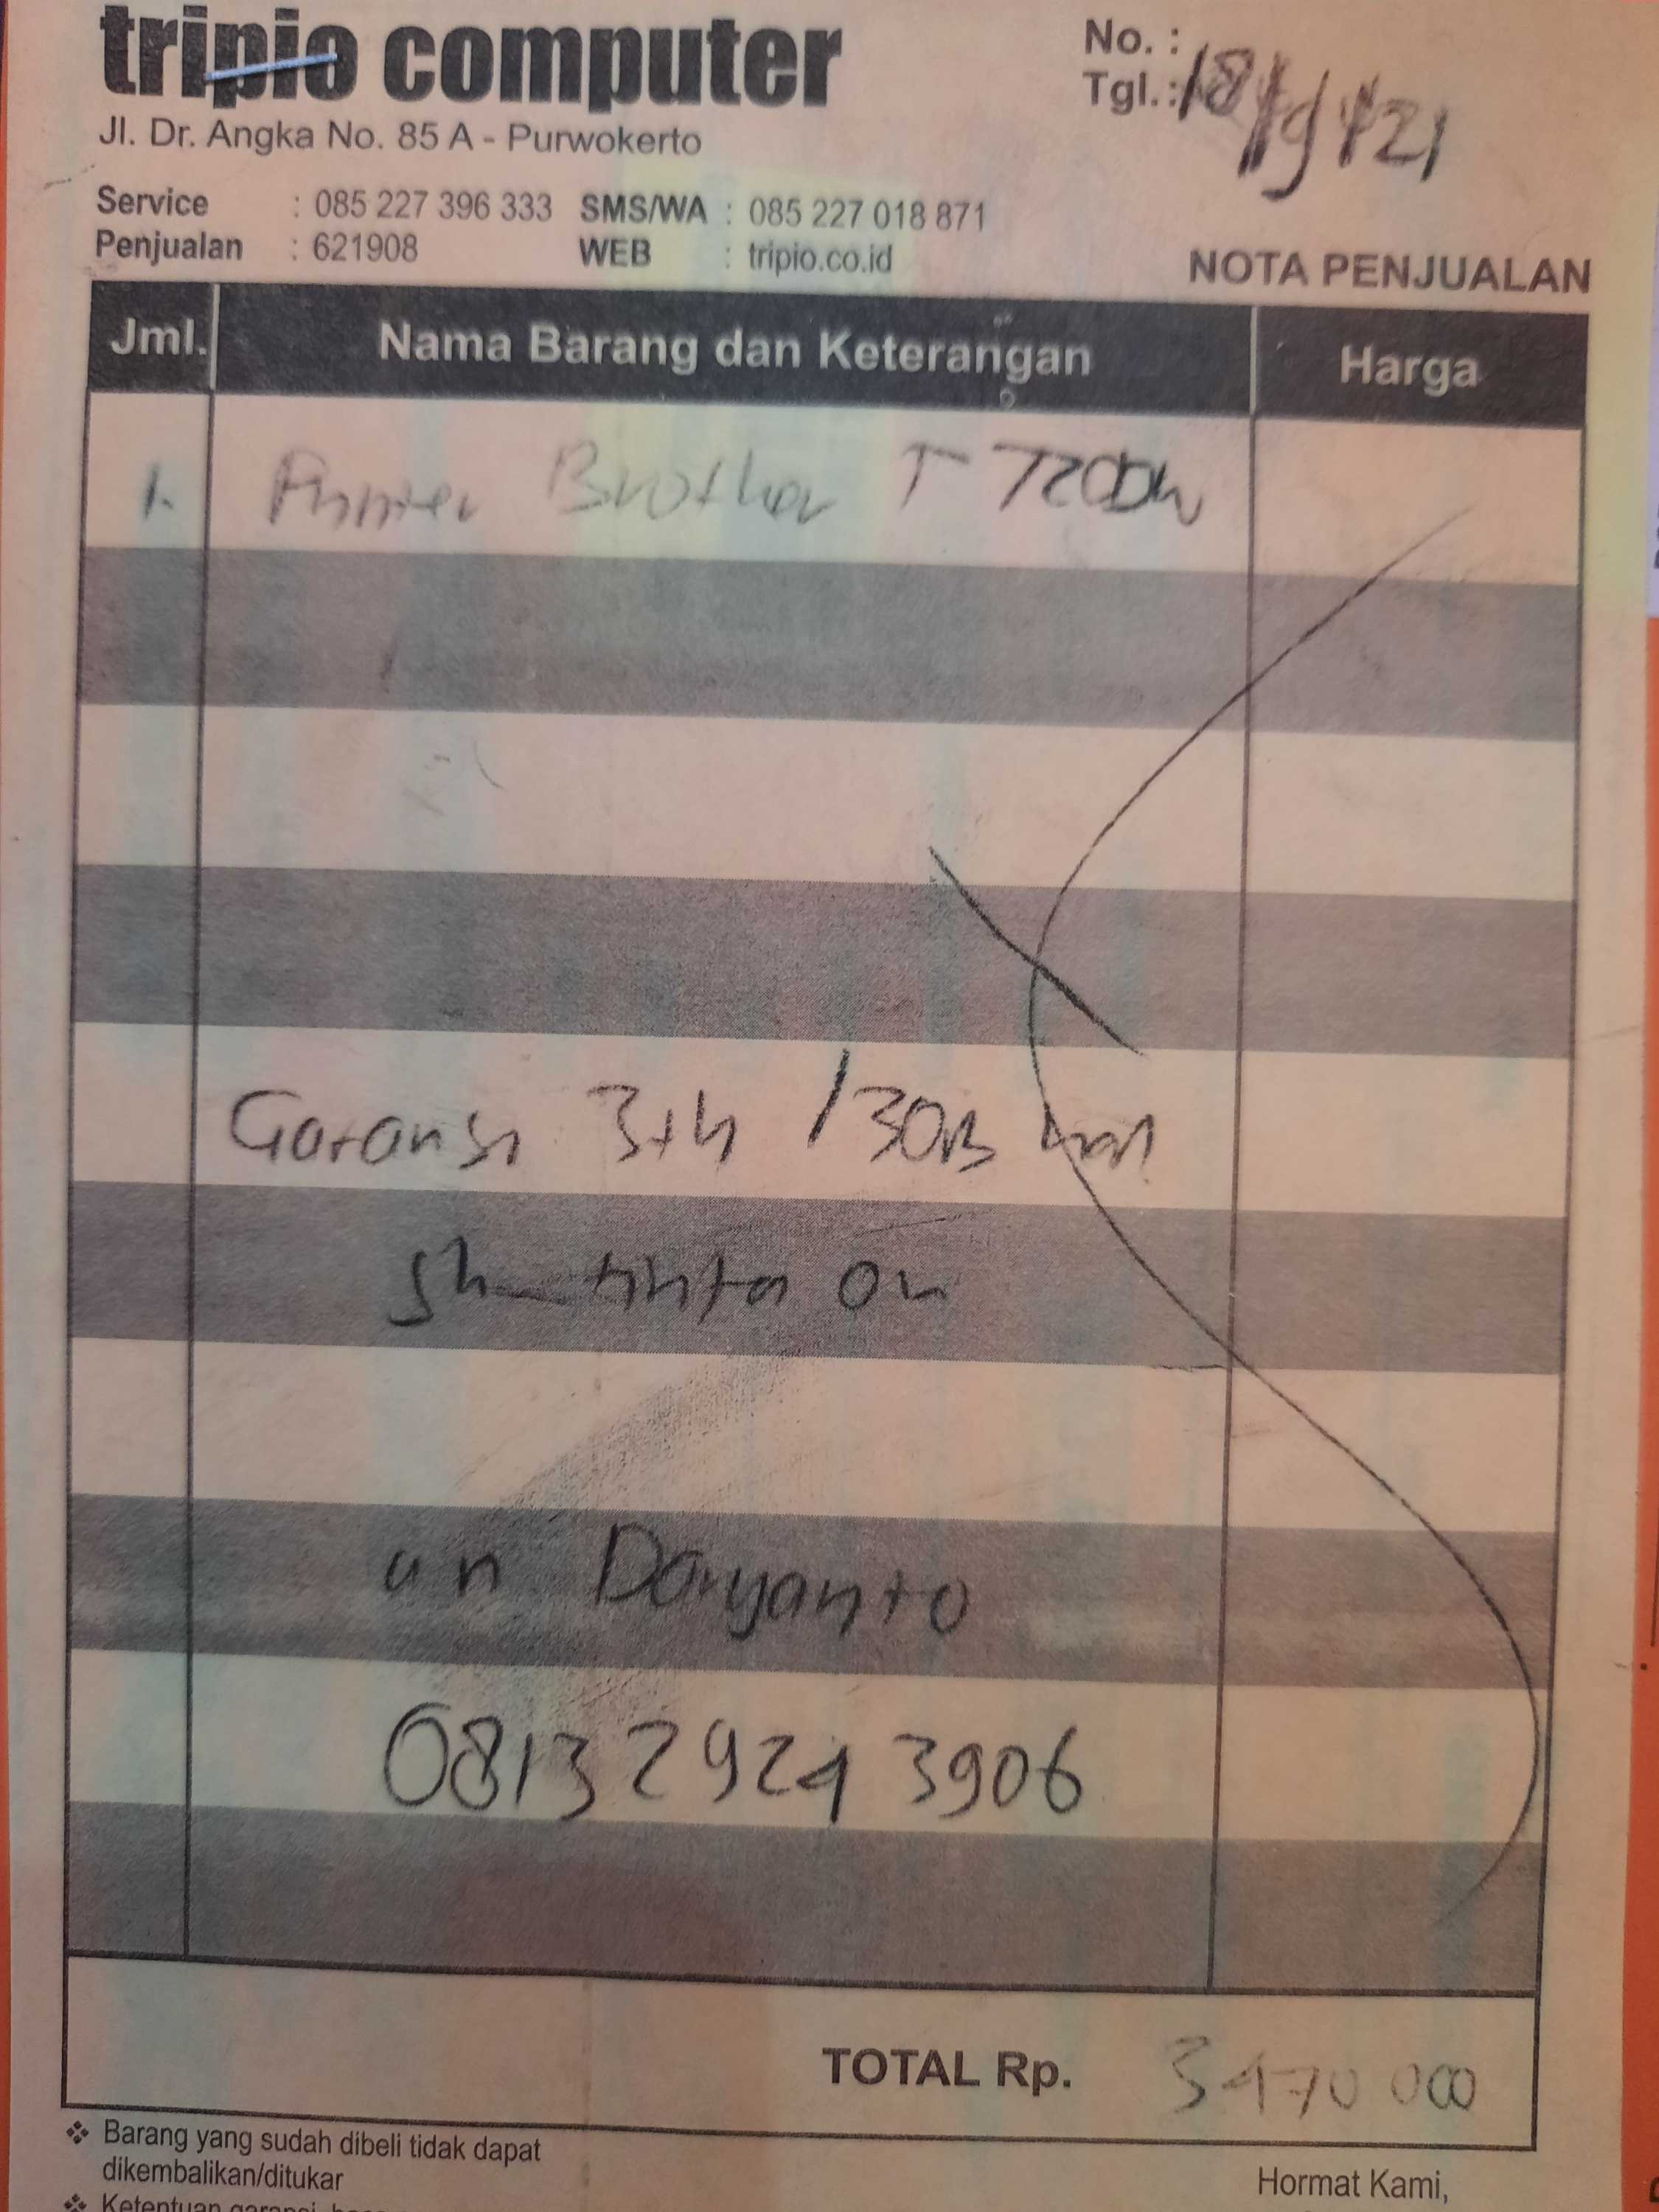 tripio computer
Jl. Dr. Angka No. 85 A - Purwokerto
No. :
Tgl. : 18/9/21
Service : 085 227 396 333 SMS/WA : 085 227 018 871
Penjualan : 621908 WEB : tripio.co.id
NOTA PENJUALAN
Jml. Nama Barang dan Keterangan Harga
1. Printer Brother T-T720DW
Garansi 3th /30rb
tinta
an Daryanto
0813 2924 3906
TOTAL Rp. 3470 000
❖ Barang yang sudah dibeli tidak dapat
dikembalikan/ditukar
Hormat Kami,
❖ Ketentuan garansi